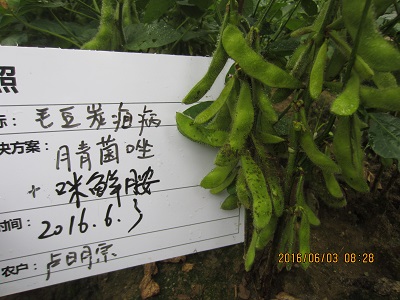 照
标: 毛豆炭疽病
决方案: 腈菌唑
+ 咪鲜胺
时间: 2016.6.3
农户: 卢日月宗
2016/06/03 08:28